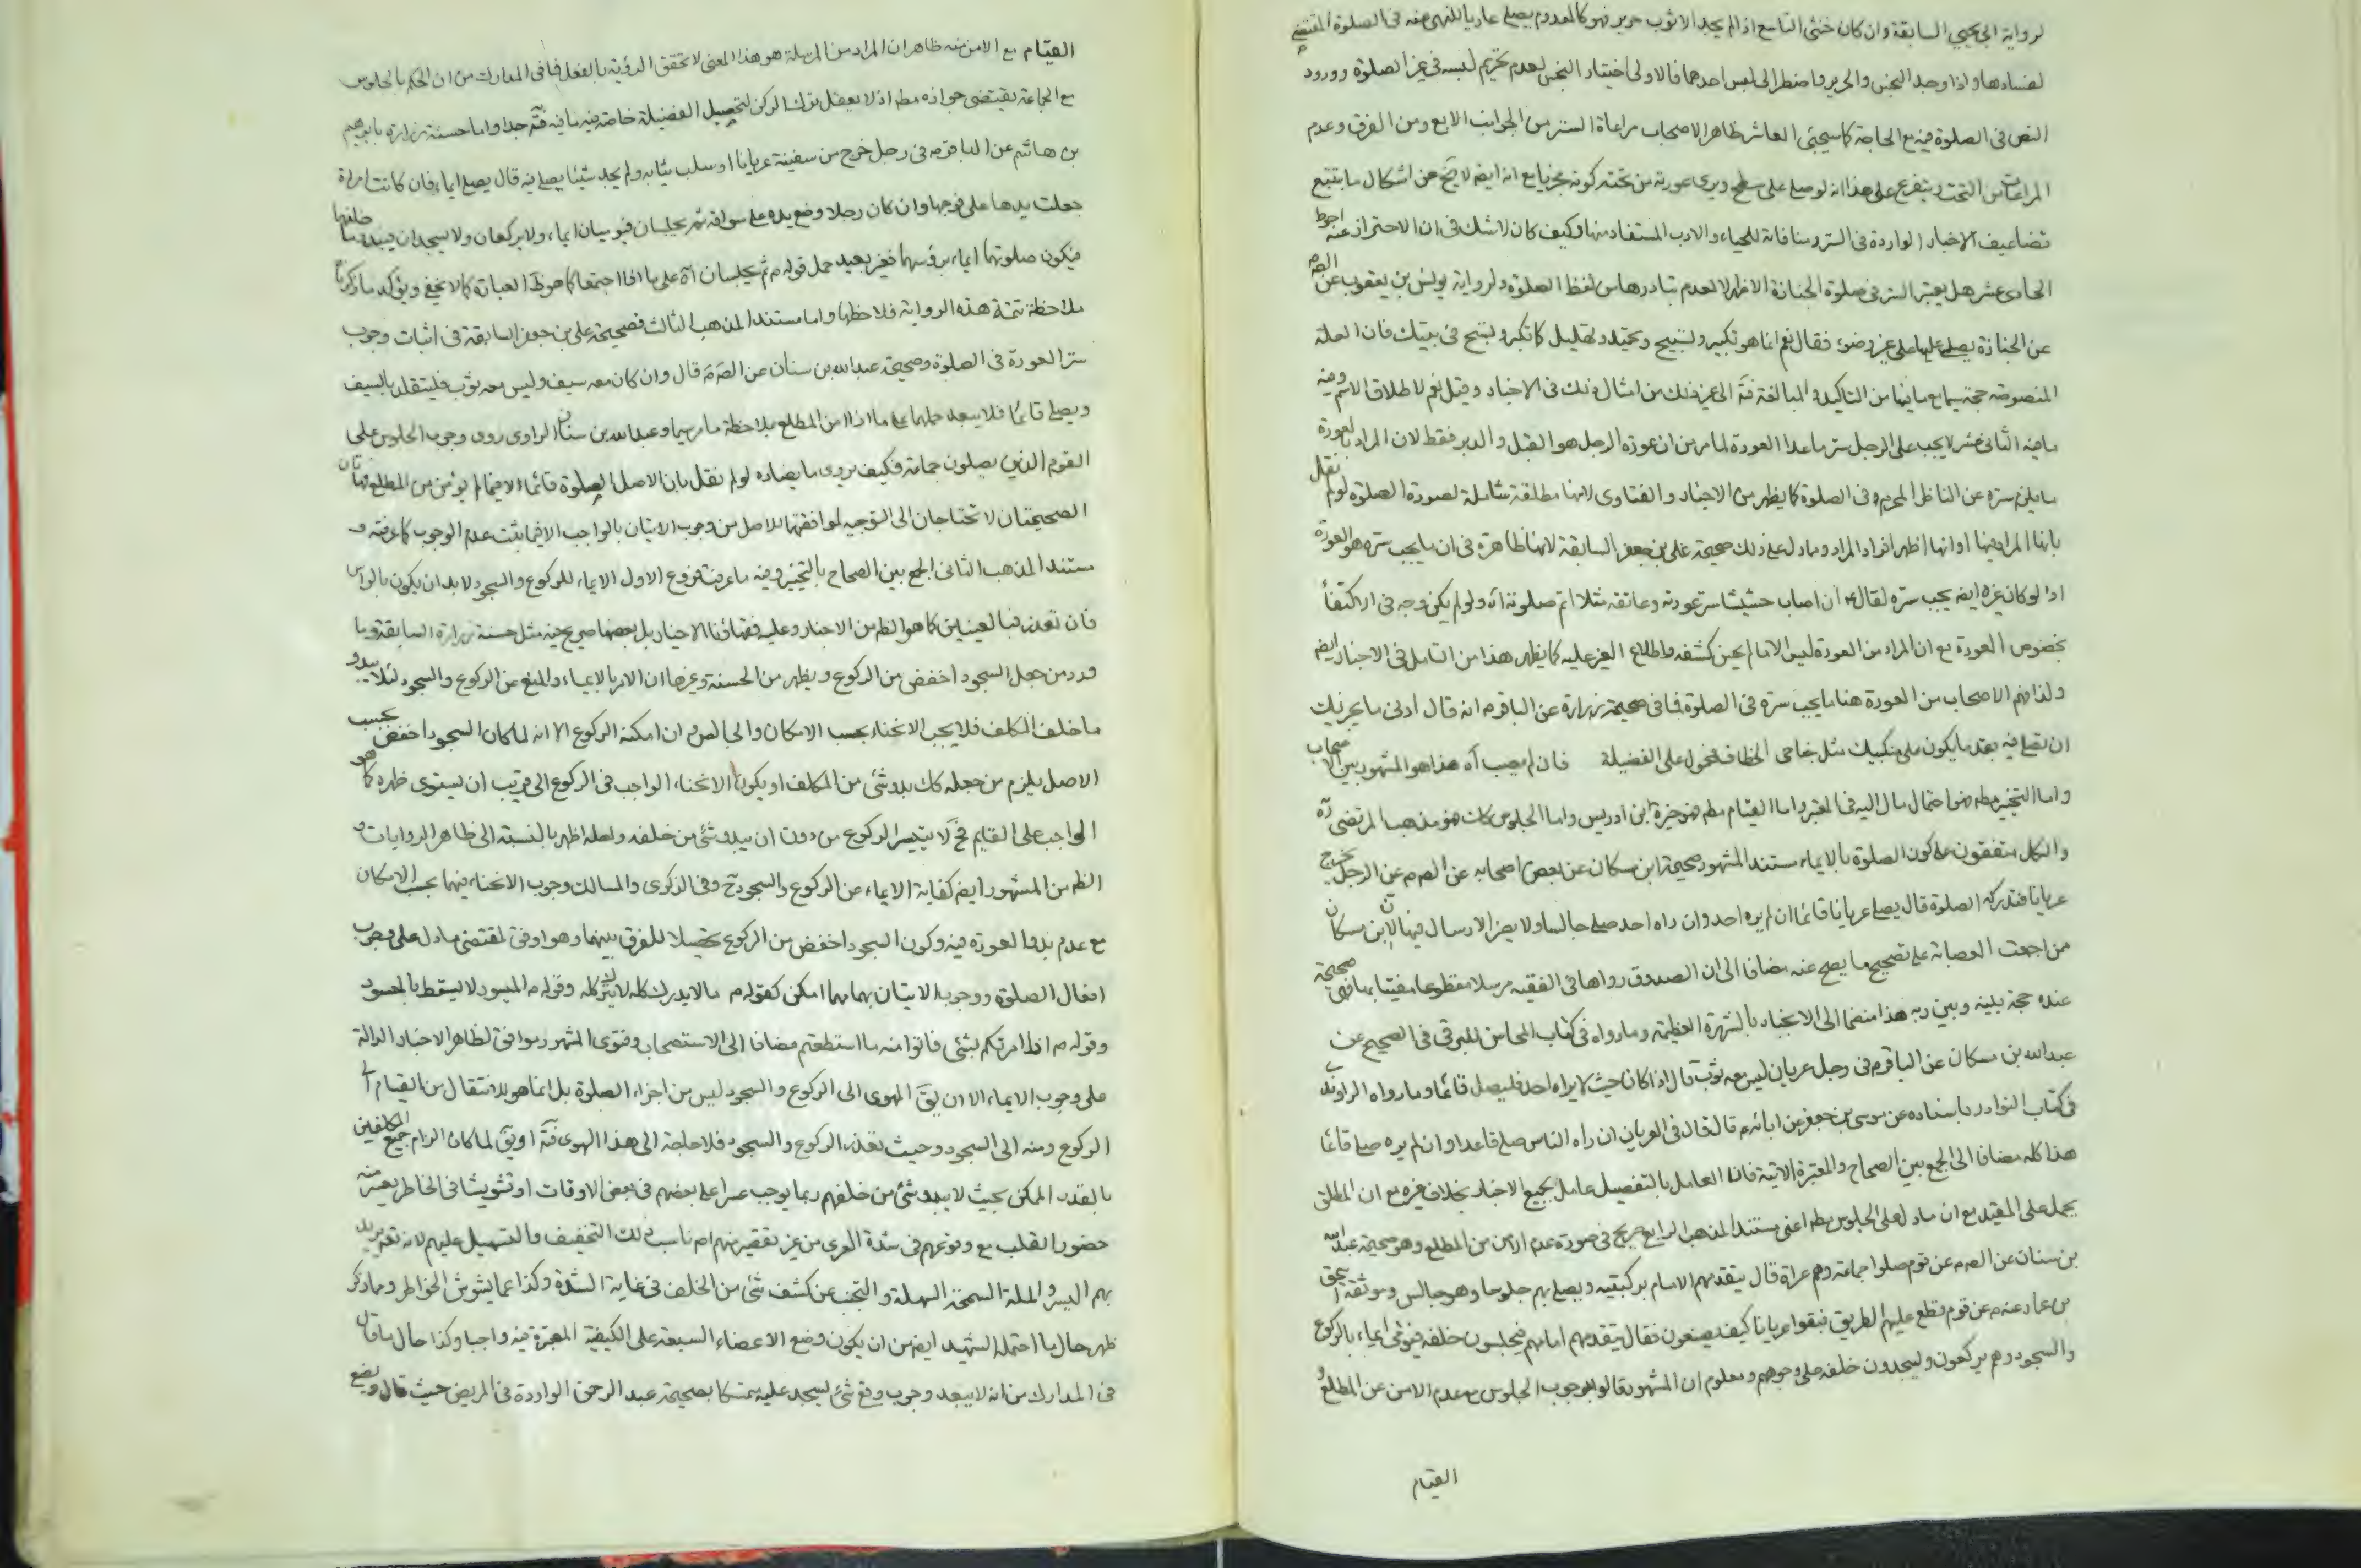 لرواية ابى يحيى السابقة وان كان خنثى التاسع اذا لم يجد الا ثوب حرير فهو كالمعدوم يصلى عاريا للنهى عنه فى الصلوة المقتضى
لفسادها واذا وجد النجس والحرير واضطر الى لبس احدهما فالاولى اختيار النجس لعدم تحريم لبسه فى غير الصلوة وورود
النص فى الصلوة فيه مع الحاجة كما سيجئ العاشر ظاهر الاصحاب مراعاة الستر من الجوانب الاربع ومن الفوق وعدم
المراعات من التحت ويتفرع على هذا انه لو صلى على سطح ويرى عورته من تحته كونه مجزيا مع انه ايضا لا يخ عن اشكال ما بتتبع
تضاعيف الاخبار الواردة فى الستر ومنافاته للحياء والادب المستفاد منها وكيف كان لا شك فى ان الاحتراز عنه احوط
الحادى عشر هل يعتبر الستر فى صلوة الجنازة الاظهر لا لعدم تبادرها من لفظ الصلوة ولرواية يونس بن يعقوب عن الصم
عن الجنازة يصلى عليها على غير وضوء فقال نعم انما هو تكبير وتسبيح وتحميد وتهليل كما تكبر وتسبح فى بيتك فان العلة
المنصوصة حجة سيما مع ما فيها من التاكيد والمبالغة فتم الى غير ذلك من امثال ذلك فى الاخبار وقيل نعم لاطلاق الاسم وفيه
ما فيه الثانى عشر لا يجب على الرجل ستر ما عدا العورة لما مر من ان عورة الرجل هو القبل والدبر فقط لان المراد بالعورة
ما يلزم ستره عن الناظر المحرم وفى الصلوة كما يظهر من الاخبار والفتاوى لانها مطلقة شاملة لصورة الصلوة لو لم نقل
بانها المراد منها او انها اظهر افراد المراد وما دل على ذلك صحيحة على بن جعفر السابقة لانها ظاهرة فى ان ما يجب ستره هو العورة
اذ لو كان غيره ايضا يجب ستره لقال ان اصاب حشيشا ستر عورته وعاتقه مثلا اتم صلوته اه ولو لم يكن وجه فى الاكتفاء
بخصوص العورة مع ان المراد من العورة ليس الا ما يجب كشفه واطلاع الغير عليه كما يظهر هذا من التامل فى الاخبار ايضا
ولذا فهم الاصحاب من العورة هنا ما يجب ستره فى الصلوة فما فى صحيحة زرارة عن الباقرم انه قال ادنى ما يجزيك
ان تصلى فيه بقدر ما يكون على منكبيك مثل جناحى الخطاف محمول على الفضيلة فان لم يصب اه هذا هو المشهور بين الاصحاب
واما التخيير مطم فهو احتمال مال اليه فى المعتبر واما القيام مطم فهو خيرة ابن ادريس واما الجلوس كك فهو مذهب المرتضى ره
والكل متفقون على كون الصلوة بالايماء مستند المشهور صحيحة ابن مسكان عن بعض اصحابه عن الصم عن الرجل يخرج
عريانا فتدركه الصلوة قال يصلى عريانا قائما ان لم يره احد وان راه احد صلى جالسا ولا يضر الارسال فيها لان ابن مسكان
من اجمعت العصابة على تصحيح ما يصح عنه مضافا الى ان الصدوق رواها فى الفقيه مرسلا مقطوعا مفتيا بما فى صحيحة
عنده حجة بينه وبين ربه هذا منضما الى الانجبار بالشهرة العظيمة وما رواه فى كتاب المحاسن للبرقى فى الصحيح عن
عبدالله بن مسكان عن الباقرم فى رجل عريان ليس معه ثوب قال اذا كان حيث لا يراه احد فليصل قائما وما رواه الراوندى
فى كتاب النوادر باسناده عن موسى بن جعفر عن ابائه م قال قال فى العريان ان راه الناس صلى قاعدا وان لم يره صلى قائما
هذا كله مضافا الى الجمع بين الصحاح والمعتبرة الاتية فانما العامل بالتفصيل عامل بجميع الاخبار بخلاف غيره مع ان المطلق
يحمل على المقيد مع ان ما دل على الجلوس مطم اعنى مستند المذهب الرابع صريح فى صورة عدم الامن من المطلع وهو صحيحة عبدالله
بن سنان عن الصم عن قوم صلوا جماعة وهم عراة قال يتقدمهم الامام بركبتيه ويصلى بهم جلوسا وهو جالس وموثقة اسحق
بن عمار عنه م عن قوم قطع عليهم الطريق فبقوا عريانا كيف يصنعون فقال يتقدمهم امامهم فيجلسون خلفه فيومى ايماء بالركوع
والسجود وهم يركعون ويسجدون خلفه على وجوههم ومعلوم ان المشهور قالوا بوجوب الجلوس مع عدم الامن عن المطلع و
القيام
القيام مع الامن منه ظاهر ان المراد من المرسلة هو هذا المعنى لا تحقق الرؤية بالفعل فما فى المدارك من ان الحكم بالجلوس
مع الجماعة يقتضى جوازه مطم اذ لا يعقل ترك الركن لتحصيل الفضيلة خاصة فيه ما فيه فتم جدا واما حسنة زرارة بابرهيم
بن هاشم عن الباقرم فى رجل خرج من سفينة عريانا او سلب ثيابه ولم يجد شيئا يصلى فيه قال يصلى ايماء فان كانت امراة
جعلت يدها على فرجها وان كان رجلا وضع يده على سوأته ثم يجلسان فيوميان ايماء ولا يركعان ولا يسجدان فيبدو ما خلفهما
فيكون صلوتهما ايماء برؤسهما فغير بعيد حمل قوله م ثم يجلسان اه على ما اذا اجتمعا كما هو ظ العبارة كما لا يخفى ويؤكد ما ذكرنا
ملاحظة تتمة هذه الرواية فلاحظها واما مستند المذهب الثالث فصحيحة على بن جعفر السابقة فى اثبات وجوب
ستر العورة فى الصلوة وصحيحة عبدالله بن سنان عن الصم قال وان كان معه سيف وليس معه ثوب فليتقلد بالسيف
ويصلى قائما فلا يبعد حملهما على ما اذا امن المطلع بملاحظة ما مر سيما وعبدالله بن سنان الراوى روى وجوب الجلوس على
القوم الذين يصلون جماعة فكيف يروى ما يضاده لو لم نقل بان الاصل الصلوة قائما الا فيما لم يؤمن من المطلع فهاتان
الصحيحتان لا تحتاجان الى التوجيه لموافقتهما للاصل من وجوب الاتيان بالواجب الا فيما يثبت عدم الوجوب كما عرفته و
مستند المذهب الثانى الجمع بين الصحاح بالتخيير وفيه ما عرفت فروع الاول الايماء للركوع والسجود لا بد ان يكون بالراس
فان تعذر فبالعينين كما هو الظم من الاخبار وعليه فقهائنا الاخيار بل بعضها صريح فيه مثل حسنة زرارة السابقة وما
ورد من جعل السجود اخفض من الركوع ويظهر من الحسنة وغيرها ان الامر بالايماء والمنع عن الركوع والسجود لئلا يبدو
ما خلف المكلف فلا يجب الانحناء بحسب الامكان والحال و ان امكنه الركوع الا انه لما كان السجود اخفض بحسب
الاصل يلزم من جعله كك بدو شئ من المكلف او يكون الانحناء الواجب فى الركوع الى قريب ان يستوى ظهره كما هو
الواجب على القايم فح لا يتيسر الركوع من دون ان يبدو شئ من خلفه ولعله اظهر بالنسبة الى ظاهر الروايات و
الظم من المشهور ايضا كفاية الايماء عن الركوع والسجود ح وفى الذكرى والمسالك وجوب الانحناء فيهما بحسب الامكان
مع عدم بدو العورة فيه وكون السجود اخفض من الركوع تحصيلا للفرق بينهما وهو اوفق لمقتضى ما دل على وجوب
افعال الصلوة ووجوب الاتيان بهما مهما امكن كقوله م ما لا يدرك كله لا يترك كله وقوله م الميسور لا يسقط بالمعسور
وقوله م اذا امرتكم بشئ فاتوا منه ما استطعتم مضافا الى الاستصحاب وفتوى المشهور موافق لظاهر الاخبار الدالة
على وجوب الايماء الا ان يق الهوى الى الركوع والسجود ليس من اجزاء الصلوة بل انما هو للانتقال من القيام الى
الركوع ومنه الى السجود وحيث تعذر الركوع والسجود فلا حاجة الى هذا الهوى فتم او يق لما كان الزام جميع المكلفين
بالقدر الممكن بحيث لا يبدو شئ من خلفهم ربما يوجب عسرا على بعضهم فى بعض الاوقات او تشويشا فى الخاطر يعسر منه
حضور القلب مع وقوعهم فى شدة العرى من غير تقصير منهم ام ناسب ذلك التخفيف والتسهيل عليهم لانه تعم يريد
بهم اليسر والملة السمحة السهلة والتجنب عن كشف شئ من الخلف فى غاية الشدة وكذا عما يشوش الخواطر ومما ذكر
ظهر حال ما احتمله الشهيد ايضا من ان يكون وضع الاعضاء السبعة على الكيفية المعتبرة فيه واجبا وكذا حال ما قال
فى المدارك من انه لا يبعد وجوب وضع شئ يسجد عليه متمسكا بصحيحة عبد الرحمن الواردة فى المريض حيث قال ويضع